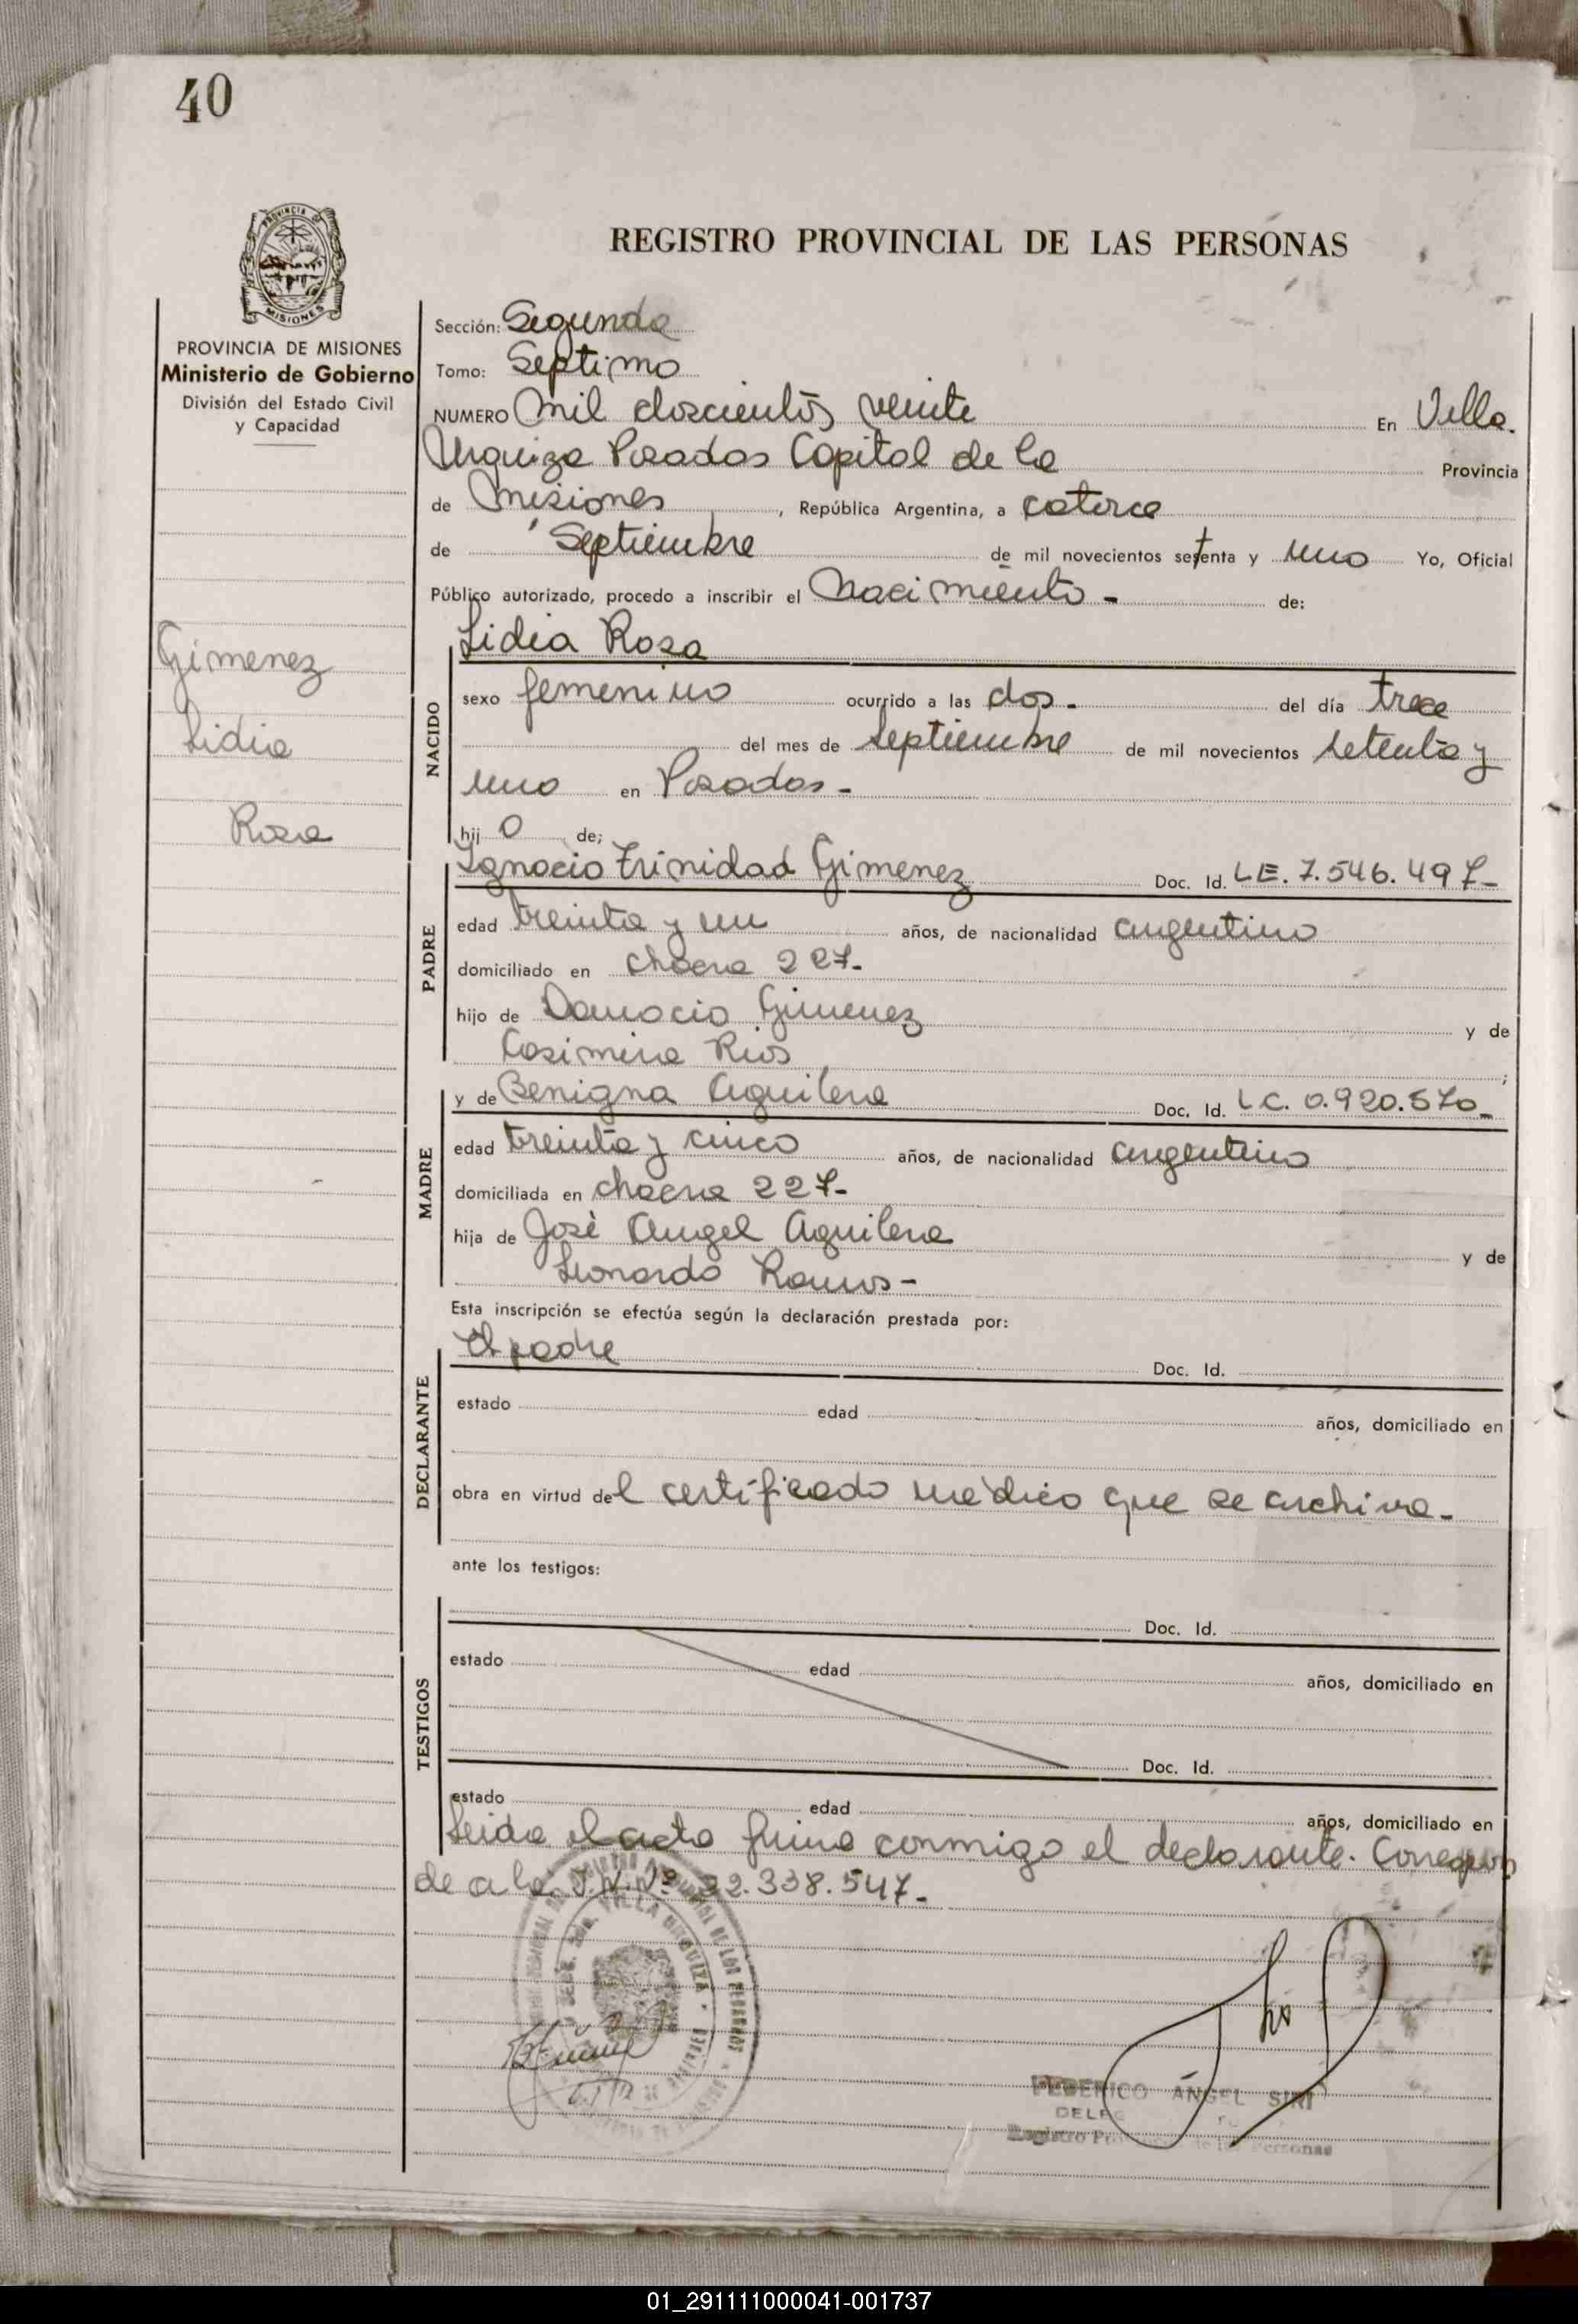 40
PROVINCIA DE
MISIONES
REGISTRO PROVINCIAL DE LAS PERSONAS
PROVINCIA DE MISIONES
Ministerio de Gobierno
División del Estado Civil
y Capacidad
Gimenez
Lidia
Rosa
Sección: Segunda
Tomo: Septimo
NUMERO Mil doscientos veinte En Villa
Urquiza Posadas Capital de la Provincia
de Misiones, República Argentina, a catorce
de Septiembre de mil novecientos setenta y uno Yo, Oficial
Público autorizado, procedo a inscribir el Nacimiento - de:
NACIDO
Lidia Rosa
sexo femenino ocurrido a las dos - del día trece
del mes de Septiembre de mil novecientos setenta y
uno en Posadas -
hij o de;
PADRE
Ignacio Trinidad Gimenez Doc. Id. LE. 7.546.497-
edad treinta y un años, de nacionalidad argentino
domiciliado en chacra 227-
hijo de Gimenez y de
Casimira Rios ;
MADRE
y de Benigna Aguilera Doc. Id. L.C. 0.920.570-
edad treinta y cinco años, de nacionalidad argentino
domiciliada en chacra 227-
hija de José Angel Aguilera y de
Leonarda Ramos -
Esta inscripción se efectúa según la declaración prestada por:
DECLARANTE
El padre Doc. Id.
estado edad años, domiciliado en
obra en virtud del certificado médico que se archiva -
ante los testigos:
TESTIGOS
Doc. Id.
estado edad años, domiciliado en
Doc. Id.
estado edad años, domiciliado en
Leida el acta firma conmigo el declarante. Correspon
de a la N° 22.338.547-
VILLA URQUIZA
FEDERICO ÁNGEL SIRI
Registro Personas
01_291111000041-001737